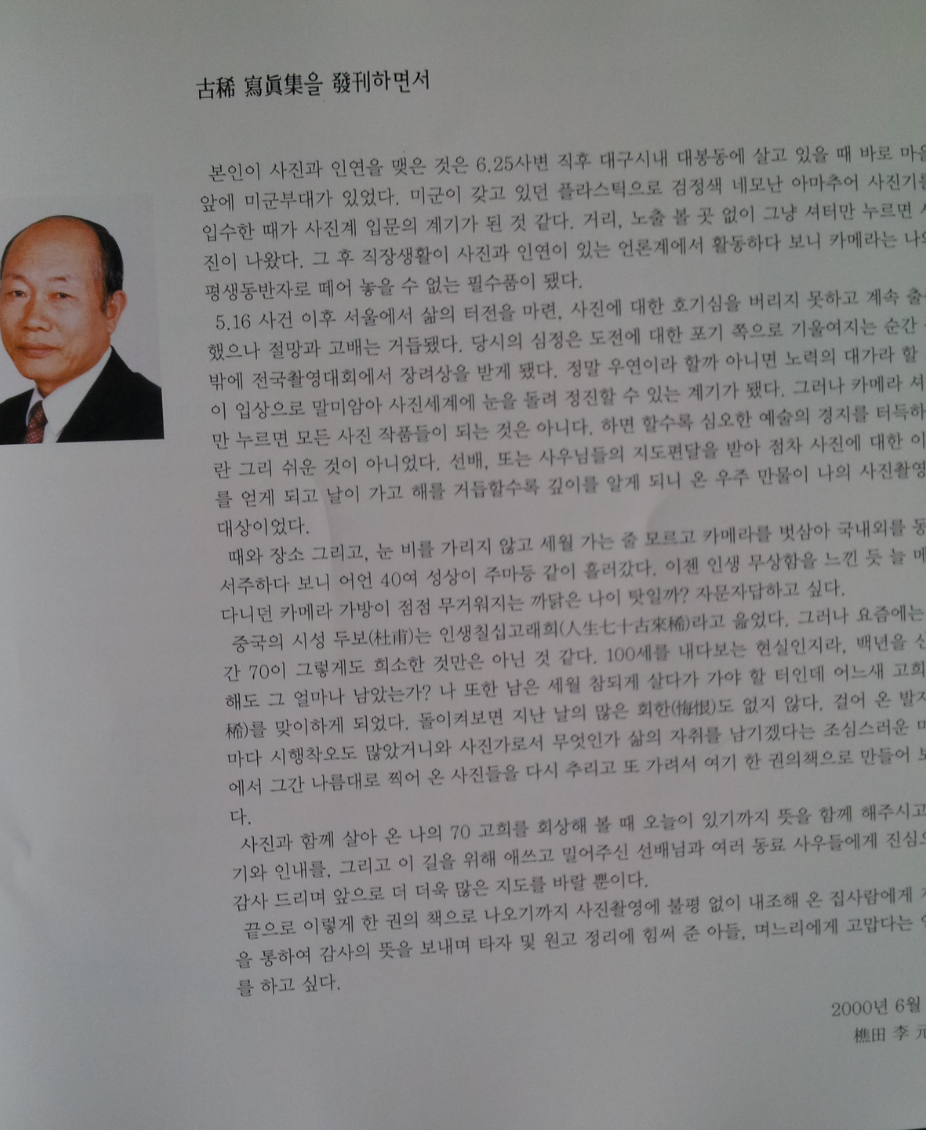 古稀 寫眞集을 發刊하면서
본인이 사진과 인연을 맺은 것은 6.25사변 직후 대구시내 대봉동에 살고 있을 때 바로
앞에 미군부대가 있었다. 미군이 갖고 있던 플라스틱으로 검정색 네모난 아마추어 사진기를
입수한 때가 사진계 입문의 계기가 된 것 같다. 거리, 노출 볼 곳 없이 그냥 셔터만 누르면
진이 나왔다. 그 후 직장생활이 사진과 인연이 있는 언론계에서 활동하다 보니 카메라는
평생동반자로 떼어 놓을 수 없는 필수품이 됐다.
5.16 사건 이후 서울에서 삶의 터전을 마련, 사진에 대한 호기심을 버리지 못하고 계속
했으나 절망과 고배는 거듭됐다. 당시의 심정은 도전에 대한 포기 쪽으로 기울여지는 순간
밖에 전국촬영대회에서 장려상을 받게 됐다. 정말 우연이라 할까 아니면 노력의 대가라 할
이 입상으로 말미암아 사진세계에 눈을 돌려 정진할 수 있는 계기가 됐다. 그러나 카메라
만 누르면 모든 사진 작품들이 되는 것은 아니다. 하면 할수록 심오한 예술의 경지를 터득하
란 그리 쉬운 것이 아니었다. 선배, 또는 사우님들의 지도편달을 받아 점차 사진에 대한 이
를 얻게 되고 날이 가고 해를 거듭할수록 깊이를 알게 되니 온 우주 만물이 나의 사진촬영
대상이었다.
때와 장소 그리고, 눈 비를 가리지 않고 세월 가는 줄 모르고 카메라를 벗삼아 국내외를 동
서주하다 보니 어언 40여 성상이 주마등 같이 흘러갔다. 이젠 인생 무상함을 느낀 듯 늘 메
다니던 카메라 가방이 점점 무거워지는 까닭은 나이 탓일까? 자문자답하고 싶다.
중국의 시성 두보(杜甫)는 인생칠십고래희(人生七十古來稀)라고 읊었다. 그러나 요즘에는
간 70이 그렇게도 희소한 것만은 아닌 것 같다. 100세를 내다보는 현실인지라, 백년을 산
해도 그 얼마나 남았는가? 나 또한 남은 세월 참되게 살다가 가야 할 터인데 어느새 고희
稀)를 맞이하게 되었다. 돌이켜보면 지난 날의 많은 회한(悔恨)도 없지 않다. 걸어 온 발자
마다 시행착오도 많았거니와 사진가로서 무엇인가 삶의 자취를 남기겠다는 조심스러운 마
에서 그간 나름대로 찍어 온 사진들을 다시 추리고 또 가려서 여기 한 권의책으로 만들어 보
다.
사진과 함께 살아 온 나의 70 고희를 회상해 볼 때 오늘이 있기까지 뜻을 함께 해주시고
기와 인내를, 그리고 이 길을 위해 애쓰고 밀어주신 선배님과 여러 동료 사우들에게 진심으
감사 드리며 앞으로 더 더욱 많은 지도를 바랄 뿐이다.
끝으로 이렇게 한 권의 책으로 나오기까지 사진촬영에 불평 없이 내조해 온 집사람에게
을 통하여 감사의 뜻을 보내며 타자 및 원고 정리에 힘써 준 아들, 며느리에게 고맙다는
를 하고 싶다.
2000년 6월
樵田 李 元